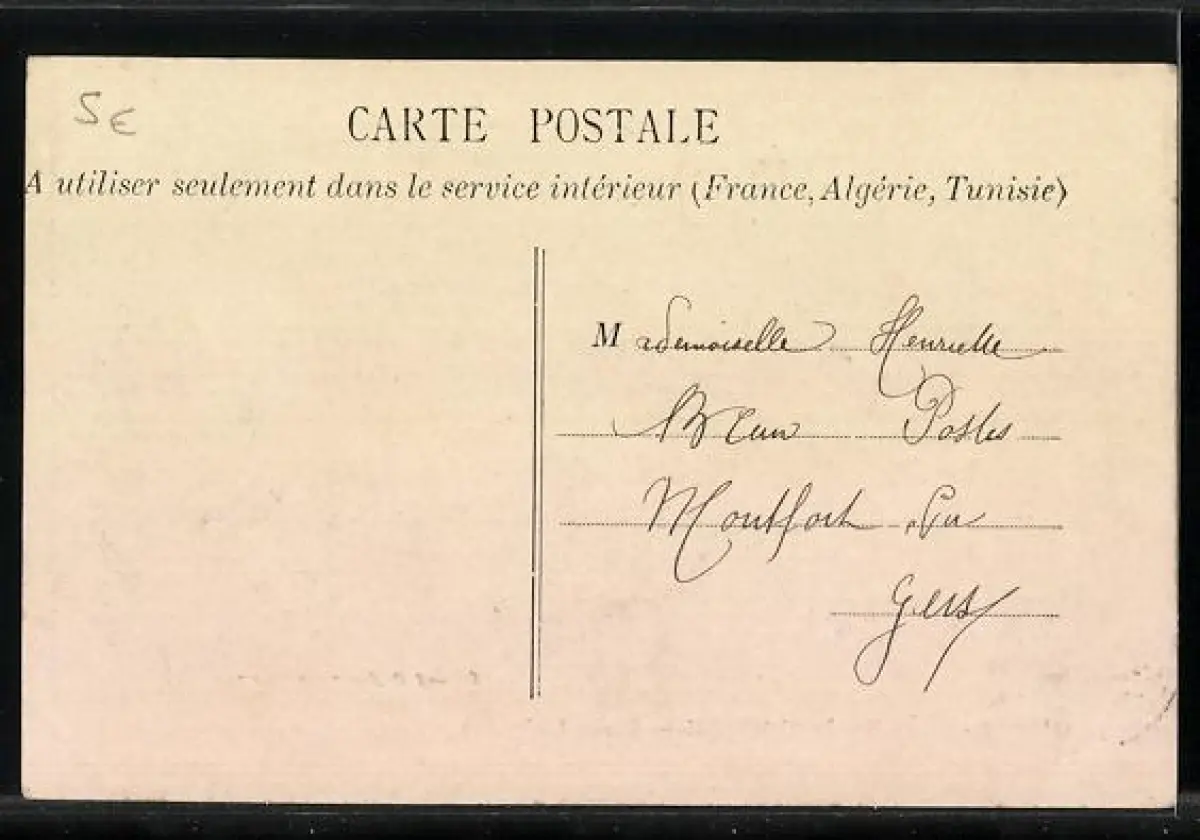 5€
CARTE POSTALE
A utiliser seulement dans le service intérieur (France, Algérie, Tunisie)
Mademoiselle Henriette
Postes
Montfort
Gers